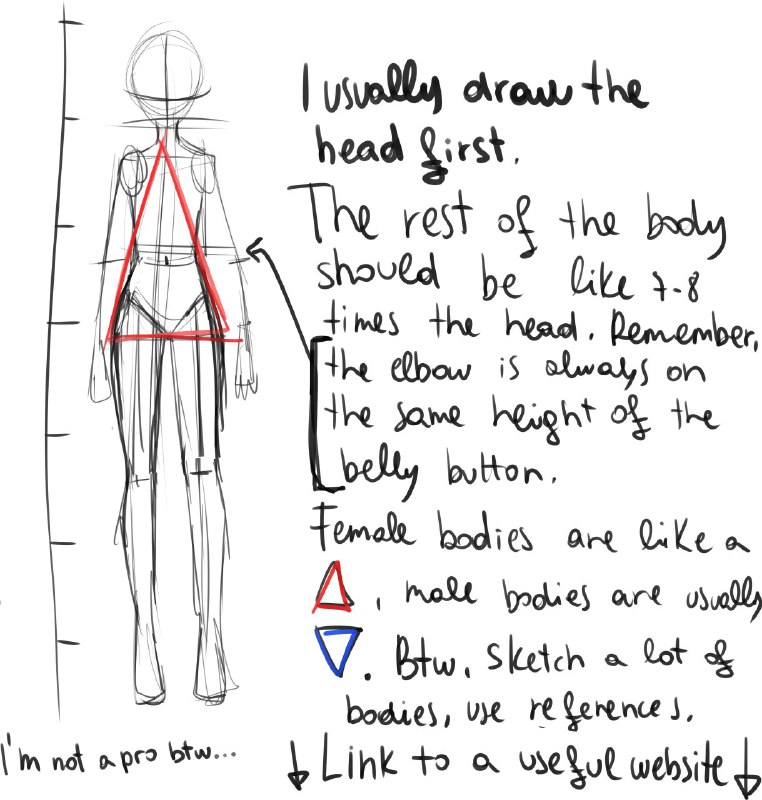 I usually draw the
head first.
The rest of the body
should be like 7-8
times the head. Remember,
the elbow is always on
the same height of the
belly button.
Female bodies are like a
, male bodies are usually
. Btw, sketch a lot of
bodies, use references.
I'm not a pro btw...
Link to a useful website